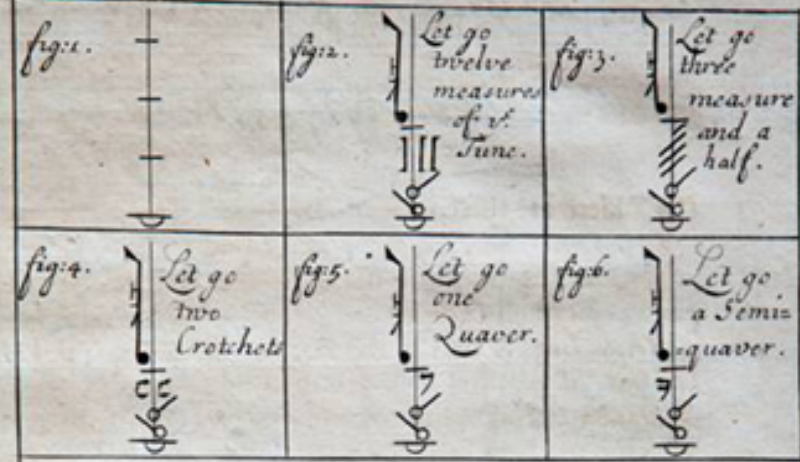 fig:1.
fig:2.
Let go
twelve
measures
of yᵉ
Tune.
fig:3.
Let go
three
measure
and a
half.
fig:4.
Let go
two
Crotchets
fig:5.
Let go
one
Quaver.
fig:6.
Let go
a Semi=
quaver.